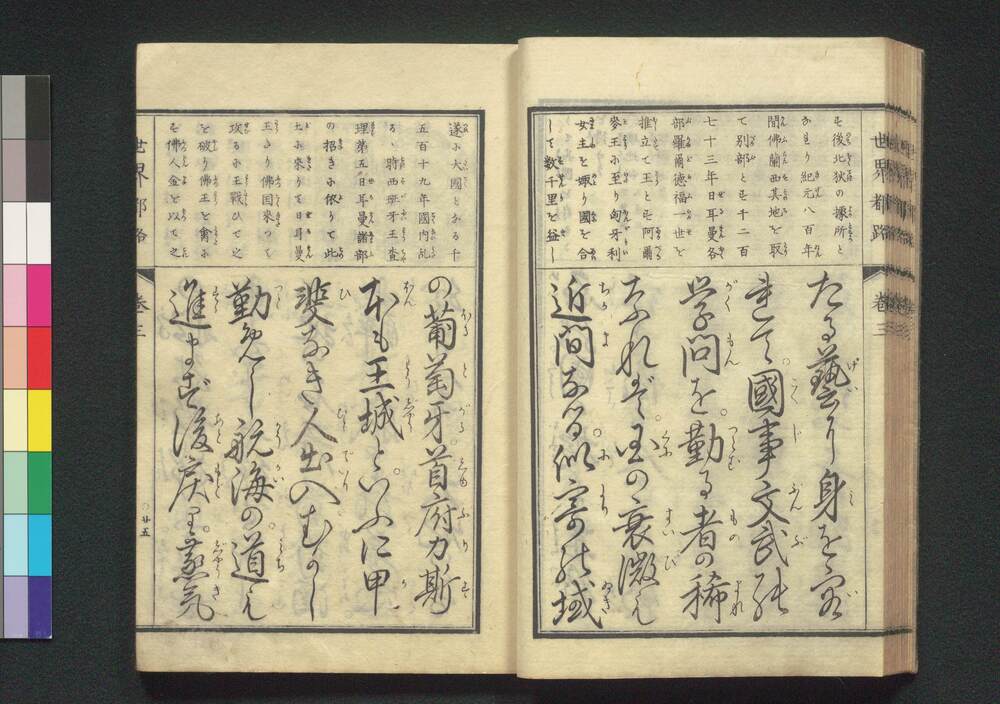 世界都路
卷三
も後北狄の據所と
なまり紀元八百年
間佛蘭西其地を取
て別部とも千二百
七十三年日耳曼各
部羅爾德福一世を
推立て王とも阿爾
麥王に至り匈牙利
女主を娵り國を合
して数千里を益し
たる藝より身を
國事文武
学問を勤る者の稀
なれバ國の衰微も
近間なる似寄の域
遂に大國となる千
五百十九年國内乱
るゝ時西班牙王査
理第五日耳曼諸部
の招きに依りて此
土に來りて日耳曼
王たり佛国來つて
攻るに王戰ひて之
を破り佛王を禽に
も佛人金を以て之
の葡萄牙首府力斯
本も王城といふに甲
斐なき人出入むかし
勤免し航海の道も
進まず後戻里蒸気
世界都路
卷三
廿五